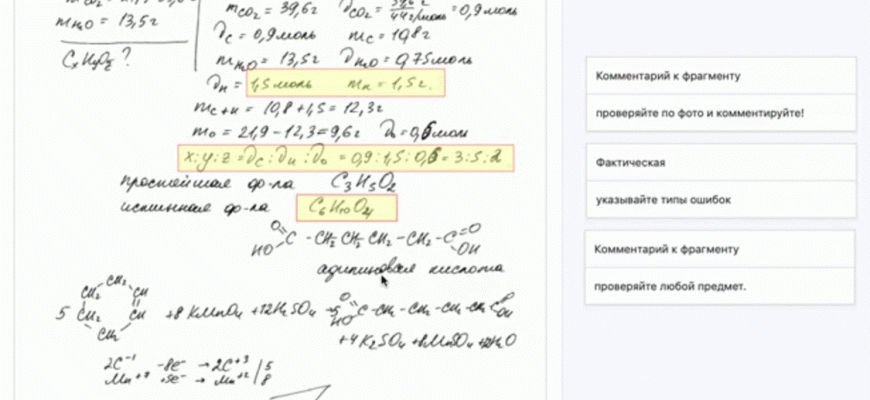 mCO₂ = 39,6г
= 0,9моль
44г/моль
mH₂O = 13,5г
νC = 0,9моль mC = 10,8г
CxHyOz ?
mH₂O = 13,5г νH₂O = 0,75моль
νH = 1,5моль mH = 1,5г.
mC+H = 10,8 + 1,5 = 12,3г
mO = 21,9 - 12,3 = 9,6г νO = 0,6моль
x:y:z = νC : νH : νO = 0,9:1,5:0,6 = 3:5:2
простейшая ф-ла C₃H₅O₂
истинная ф-ла C₆H₁₀O₄
O HO C - CH₂ - CH₂ - CH₂ - CH₂ - C = O OH
адипиновая кислота
5 CH₂ CH₂ CH CH₂ CH CH₂ +8 KMnO₄ + 12H₂SO₄ → 5
+4K₂SO₄ + 8MnSO₄ +
2C⁻¹ -8e⁻ → 2C⁺³ | 5
Mn⁺⁷ +5e⁻ → Mn⁺² | 8
Комментарий к фрагменту
проверяйте по фото и комментируйте!
Фактическая
указывайте типы ошибок
Комментарий к фрагменту
проверяйте любой предмет.